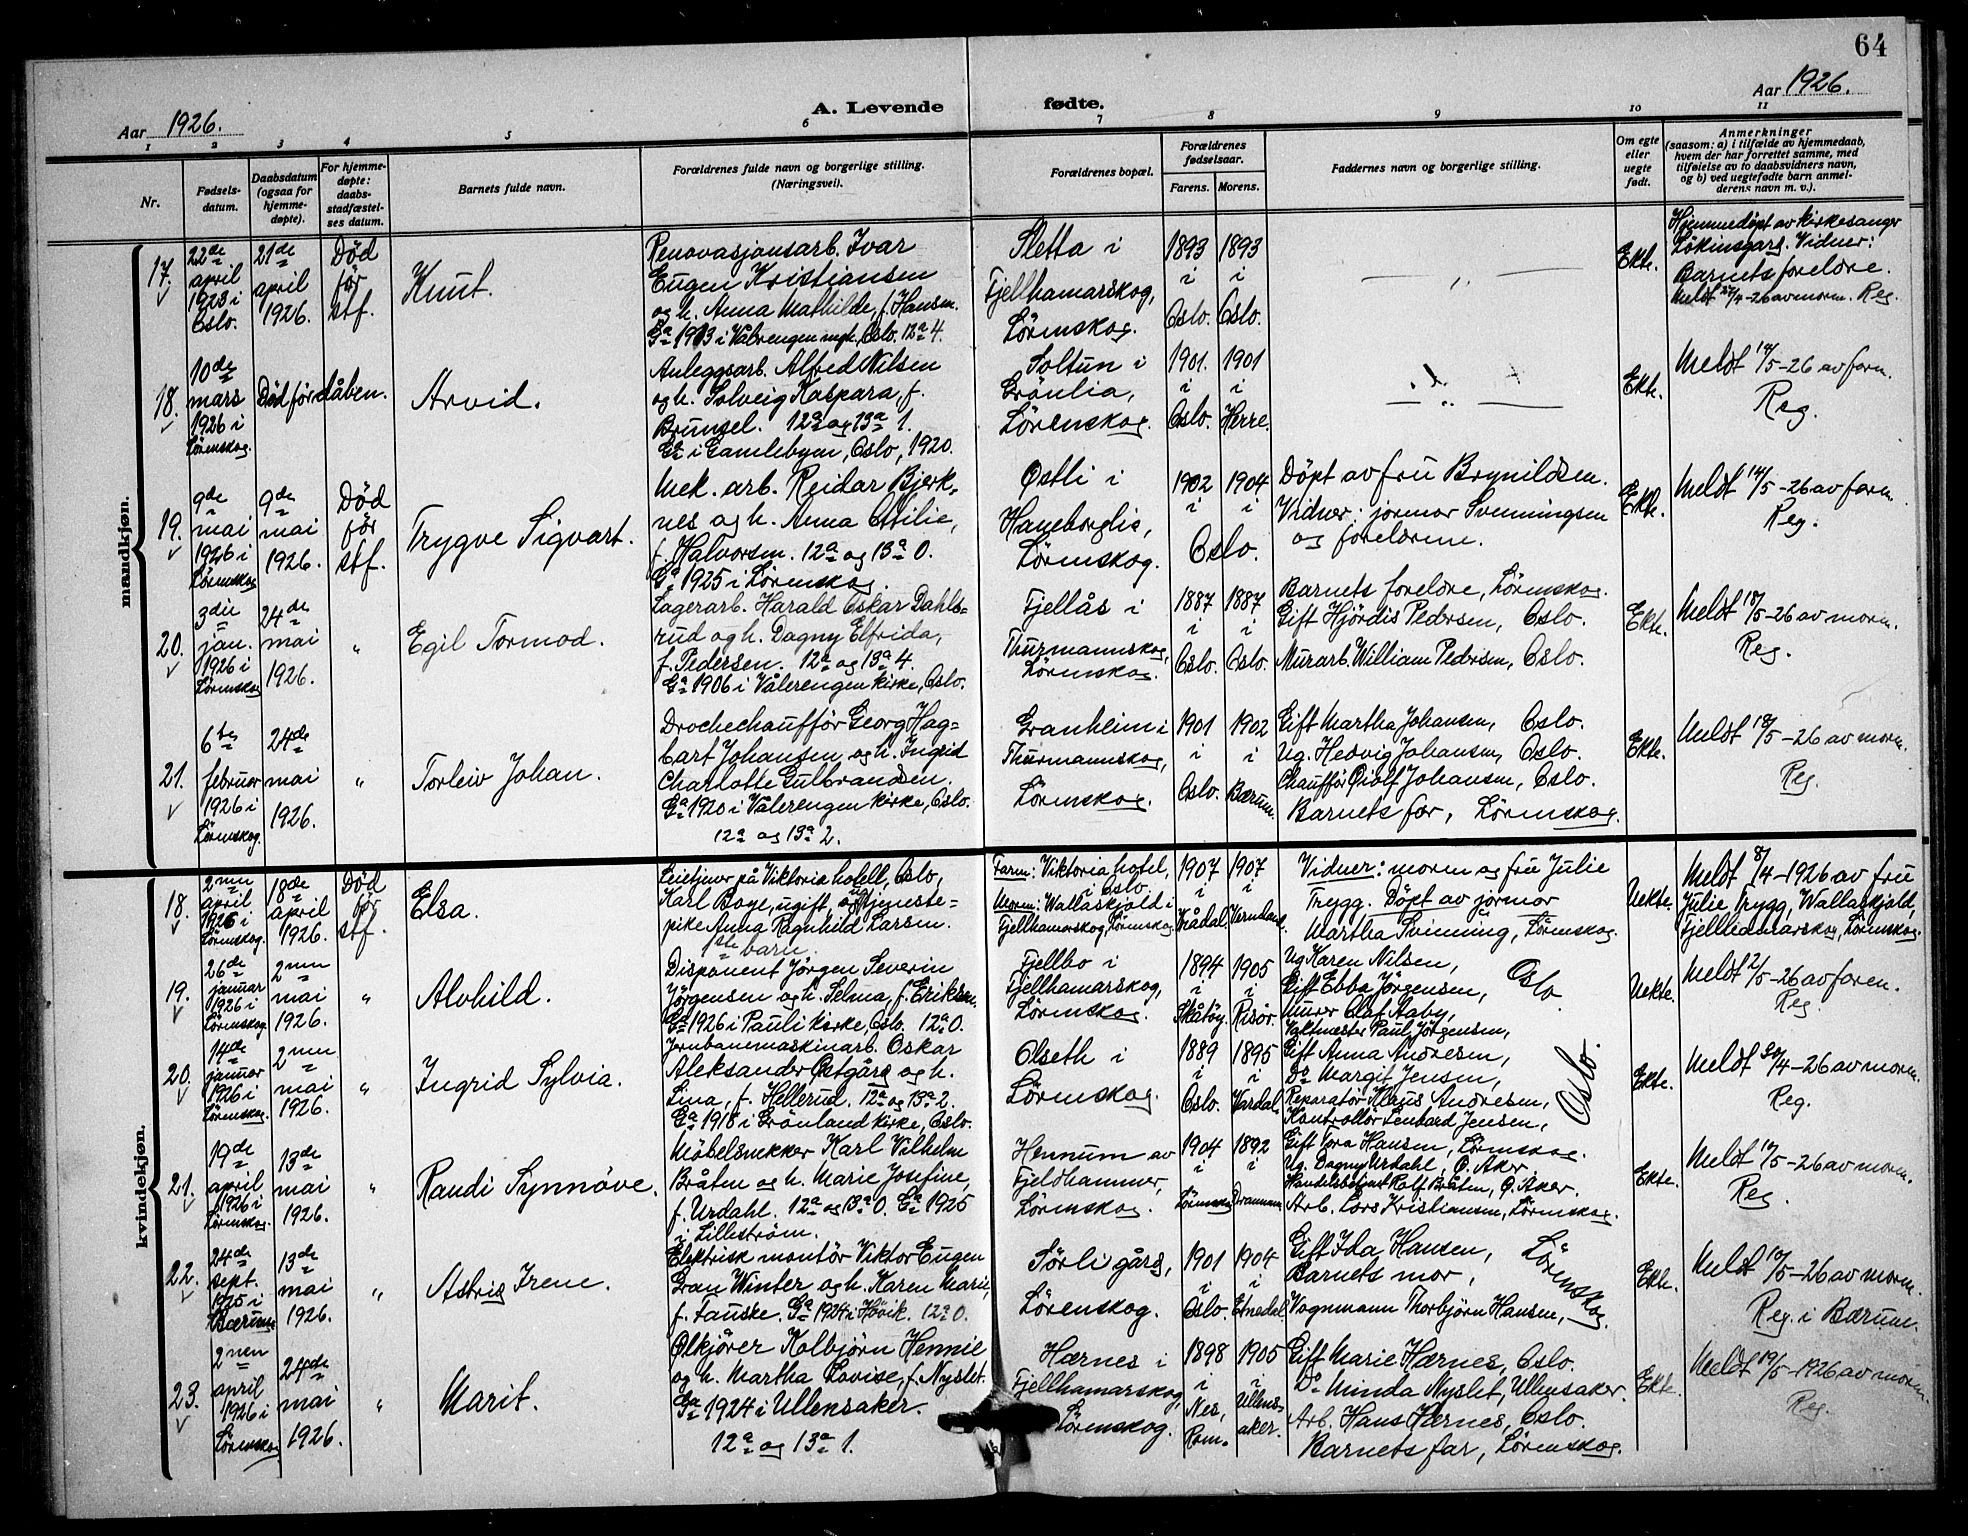 64
A. Levende fødte.
Aar 1926.
Aar 1926.
1 2 3 4 5 6 7 8 9 10 11
Nr.
Fødsels-
datum.
Daabsdatum
(ogsaa for
hjemme-
døpte).
For hjemme-
døpte:
daabs-
stadfæstel-
ses datum.
Barnets fulde navn.
Forældrenes fulde navn og borgerlige stilling.
(Næringsvei).
Forældrenes bopæl.
Forældrenes
fødselsaar.
Farens. Morens.
Faddernes navn og borgerlige stilling.
Om egte
eller
uegte
født.
Anmerkninger
(saasom: a) i tilfælde av hjemmedaab,
hvem der har forrettet samme, med
tilføielse av to daabsvidners navn,
og b) ved uegtefødte barn anmel-
derens navn m. v.).
mandkjøn.
17.
22de
april
1923 i
Oslo.
21de
april
1926.
Død
før
stf.
Knut.
Renovasjonsarb. Ivar
Eugen Kristiansen
og h. Anna Mathilde, f. Hansen.
Ga 1913 i Vålrengen mgh., Oslo. 12a 4.
Sletta i
Fjellhamarskog,
Lørenskog.
1893
i
Oslo.
1893
i
Oslo.
Ekte.
Hjemmedøpt av kirkesanger
Løkinsgard. Vidner:
Barnets foreldre.
Meldt 27/4-26 av morm. Reg.
18.
10de
mars
1926 i
Lørenskog.
Død før dåben.
Arvid.
Anleggsarb. Alfred Nilsen
og h. Solveig Kaspara, f.
Brunsel. 12a og 13a 1.
Ga i Gamlebyen, Oslo, 1920.
Soltun i
Grønlia,
Lørenskog.
1901.
i
Oslo.
1901
i
Herre.
Ekte.
Meldt 19/5-26 av faren.
Reg.
19.
9de
mai
1926 i
Lørenskog
9de
mai
1926.
Død
før
stf.
Trygve Sigvart.
Mek. arb. Reidar Bjerk-
nes og h. Anna Otilie,
f. Halvorsen. 12a og 13a 0.
Ga 1925 i Lørenskog.
Østli i
Haneborglia,
Lørenskog.
1902
i
1904
i
Oslo.
Døpt av fru Brynildsen.
Vidner: jormor Svenningsen
og foreldrene.
Ekte.
Meldt 14/5-26 av faren.
Reg.
20.
3die
jan.
1926 i
Lørenskog
24de
mai
1926.
"
Egil Tormod.
Lagerarb. Harald Oskar Dahls-
rud og h. Dagny Elfrida,
f. Pedersen. 12a og 13a 4.
Ga 1906 i Vålerengen kirke, Oslo.
Fjellås i
Thurmannskog,
Lørenskog.
1887
i
Oslo.
1887
i
Oslo.
Barnets foreldre, Lørenskog.
Gift Hjördis Pedersen, Oslo.
Murarb. William Pedersen, Oslo.
Ekte.
Meldt 18/5-26 av morm.
Reg.
21.
6te
februar
1926 i
Lørenskog.
24de
mai
1926.
"
Torleiv Johan.
Droschechauffør Georg Hag-
bart Johansen og h. Ingrid
Charlotte Gulbrandsen.
Ga 1920 i Vålerengen kirke, Oslo.
12a og 13a 2.
Granheim i
Thurmannskog,
Lørenskog.
1901
i
Oslo.
1902
i
Bærum.
Gift Martha Johansen, Oslo.
Ug. Hedvig Johansen, Oslo.
Chauffør Oiolf Johansen, Oslo.
Barnets far, Lørenskog.
Ekte.
Meldt 18/5-26 av morm.
Reg.
kvindekjøn.
18.
2nen
april
1926 i
Lørenskog.
18de
april
1926.
Død
før
stf.
Elsa.
på Viktoria hotell, Oslo,
Karl Boye, ugift, og tjeneste-
pike Anna Ragnhild Larsen.
1ste barn.
Faren: Viktoria hotel,
i Oslo.
Moren: Wallaskjold i
Fjellhamarskog, Lørenskog.
1907
i
Krådal.
1907
i
Vermland.
Vidner: moren og fru Julie
Trygg. Døpt av jormor
Martha Svinning, Lørenskog.
Uekte.
Meldt 8/4-1926 av fru
Julie Trygg, Wallaskjold,
Fjellhamarskog, Lørenskog.
19.
26de
januar
1926 i
Lørenskog.
2nen
mai
1926.
"
Alvhild.
Disponent Jörgen Severin
Jörgensen og h. Selma, f. Eriksen.
Ga 1926 i Pauli kirke, Oslo. 12a 0.
Fjellbo i
Fjellhamarskog,
Lørenskog.
1894
i
Skåtöy.
1905
i
Risör.
Ug Karen Nilsen,
Gift Ebba Jörgensen,
Murer Olaf Aaby,
Vaktmester Paul Jörgensen,
Oslo
Uekte.
Meldt 2/5-26 av faren.
Reg.
20.
14de
januar
1926 i
Lørenskog.
2nen
mai
1926.
"
Ingrid Sylvia.
Jernbanemaskinarb. Oskar
Aleksander Østgård og h.
Lina, f. Hellerud. 12a og 13a 2.
Ga 1918 i Grönland kirke, Oslo.
Olseth i
Lørenskog.
1889
i
Oslo.
1895
i
Vardal.
Gift Anna Andresen,
Do Margit Jensen,
Reparatør Klaus Andresen,
Kontrollör Lenhard Jensen,
Oslo.
Ekte.
Meldt 30/4-26 av morm.
Reg.
21.
19de
april
1926 i
Lørenskog.
13de
mai
1926.
"
Randi Synnöve.
Möbelsnekker Karl Vilhelm
Bråten og h. Marie Josefine,
f. Urdahl. 12a og 13a 0. Ga 1925
i Lilleström.
Hennum av
Fjeldhammer,
Lørenskog.
1904
i
Lørenskog
1892
i
Drammen
Gift Tora Hansen, Lørenskog.
Ug. Dagny Urdahl, Ø. Aker.
Handelsbetjent Rolf Bråten, Ø. Aker.
Arb. Lars Kristiansen, Lørenskog.
Ekte.
Meldt 10/5-26 av morm.
Reg.
22.
24de
sept.
1925 i
Bærum
13de
mai
1926.
"
Astrid Irene.
Elektrisk montør Viktor Eugen
Gran Winter og h. Karen Marie,
f. Fauske. Ga 1924 i Høvik. 12a 0.
Sörli gård,
Lørenskog.
1901
i
Oslo.
1904
i
Etnedal.
Gift Ida Hansen,
Barnets mor,
Vognmann Thorbjörn Hansen,
Lørenskog.
Ekte.
Meldt 10/5-26 av morm.
Reg. i Bærum.
23.
2nen
april
1926 i
Lørenskog
24de
mai
1926.
"
Marit.
Ølkjører Kolbjörn Hennie
og h. Martha Lovise, f. Nyslet.
Ga 1924 i Ullensaker.
12a og 13a 1.
Hærnes i
Fjellhamarskog,
Lørenskog.
1898
i
Nes,
Rom.
1905
i
Ullens-
aker.
Gift Marie Hærnes, Oslo.
Do Minda Nyslet, Ullensaker.
Arb. Hans Hærnes, Oslo.
Barnets far, Lørenskog.
Ekte.
Meldt 19/5-1926 av morm.
Reg.